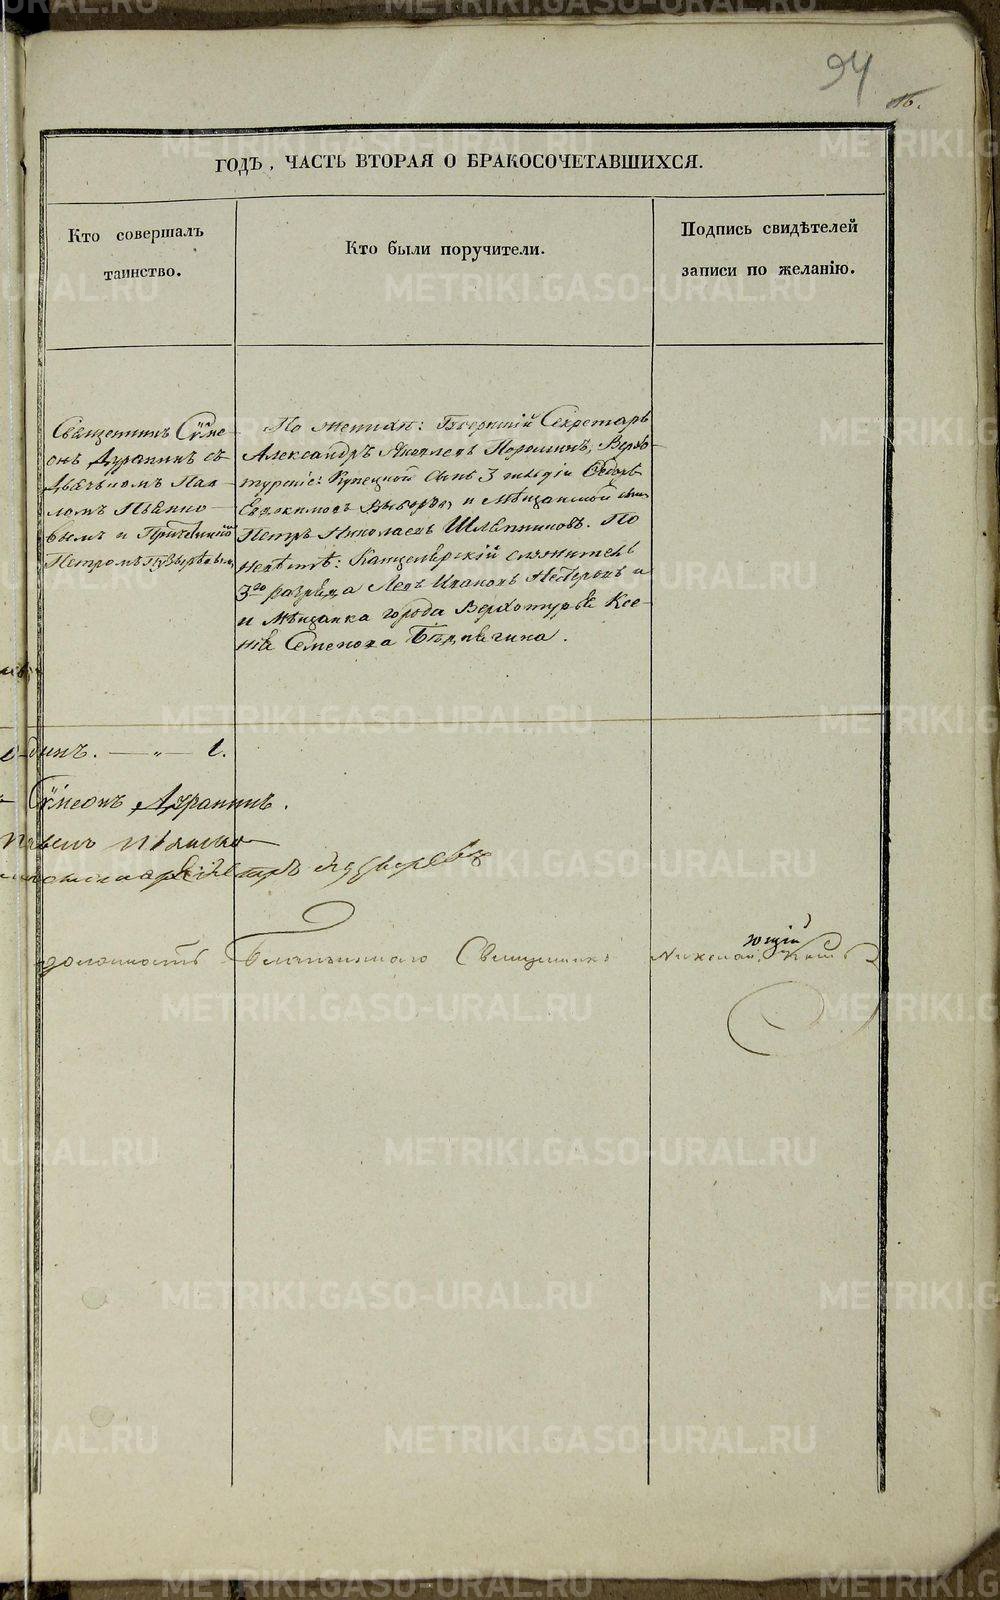 94
ГОДЪ, ЧАСТЬ ВТОРАЯ О БРАКОСОЧЕТАВШИХСЯ.
Кто совершалъ
таинство.
Кто были поручители.
Подпись свидѣтелей
записи по желанію.
Священникъ Сѵме-
онъ съ
Пав-
ломъ Пьянко-
вымъ и Причетникъ
Петромъ Пузыревымъ
По женихѣ: Губернскій Секретарь
Александръ Яковлевъ Порошинъ, Верхо-
турскіе: Купецкой сынъ 3 гильдіи Ѳедоръ
Евдокимовъ и Мѣщанской сынъ
Петръ Николаевъ Шляпниковъ. По
невѣстѣ: Канцелярскій служитель
3го разряда Левъ Ивановъ Нестеровъ и
и Мѣщанка города Верхотурья Ксе-
нія Семенова
одинъ. — „ — 1.
Сѵмеонъ
Павелъ Пьянковъ
Петръ Пузыревъ
должность Благочиннаго Священникъ Николай
ющій
METRIKI.GASO-URAL.RU